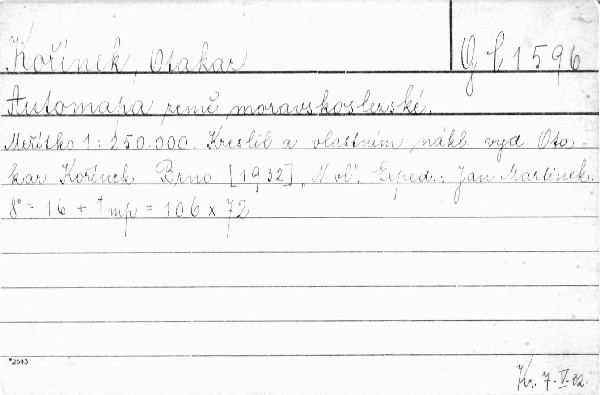 Kořínek, Otakar
G l, 1596
Automapa země moravskoslezské.
Měřítko 1 : 250.000. Kreslil a vlastním nákl. vyd. Ota-
kar Kořínek. Brno [1932] „Mol". Exped.: Jan Martinek.
8° = 16 + † mp = 106 x 72
*2513
Kr. 7-V-32.